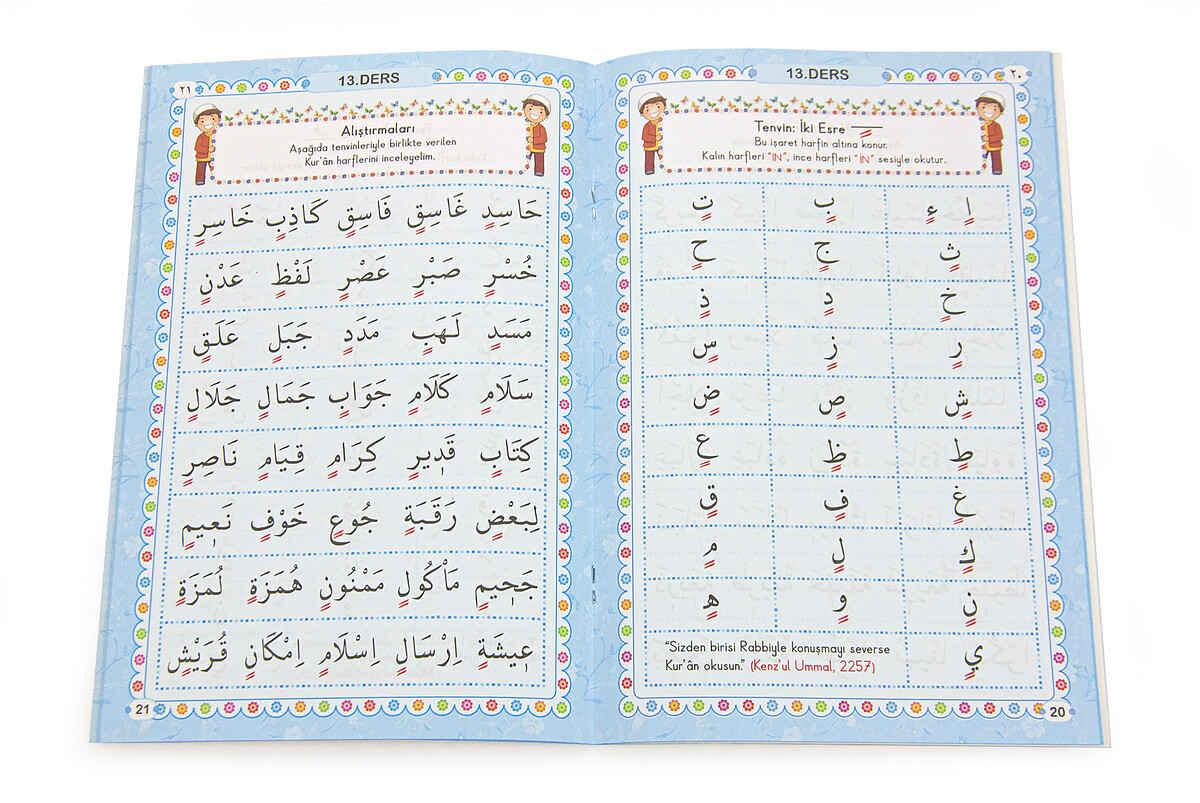 13.DERS
٢٠
Tenvin: İki Esre ـٍـ
Bu işaret harfin altına konur.
Kalın harfleri "IN", ince harfleri "İN" sesiyle okutur.
اٍ ءٍ بٍ تٍ
ثٍ جٍ حٍ
خٍ دٍ ذٍ
رٍ زٍ سٍ
شٍ صٍ ضٍ
طٍ ظٍ عٍ
غٍ فٍ قٍ
كٍ لٍ مٍ
نٍ وٍ هٍ
يٍ
"Sizden birisi Rabbiyle konuşmayı severse
Kur'ân okusun." (Kenz'ul Ummal, 2257)
20
13.DERS
٢١
Alıştırmaları
Aşağıda tenvinleriyle birlikte verilen
Kur'ân harflerini inceleyelim.
حَاسِدٍ غَاسِقٍ فَاسِقٍ كَاذِبٍ خَاسِرٍ
خُسْرٍ صَبْرٍ عَصْرٍ لَفْظٍ عَدْنٍ
مَسَدٍ لَهَبٍ مَدَدٍ جَبَلٍ عَلَقٍ
سَلَامٍ كَلَامٍ جَوَابٍ جَمَالٍ جَلَالٍ
كِتَابٍ قَدٖيرٍ كِرَامٍ قِيَامٍ نَاصِرٍ
لِبَعْضٍ رَقَبَةٍ جُوعٍ خَوْفٍ نَعٖيمٍ
جَحٖيمٍ مَاْكُولٍ مَمْنُونٍ هُمَزَةٍ لُمَزَةٍ
عٖيشَةٍ اِرْسَالٍ اِسْلَامٍ اِمْكَانٍ قُرَيْشٍ
21